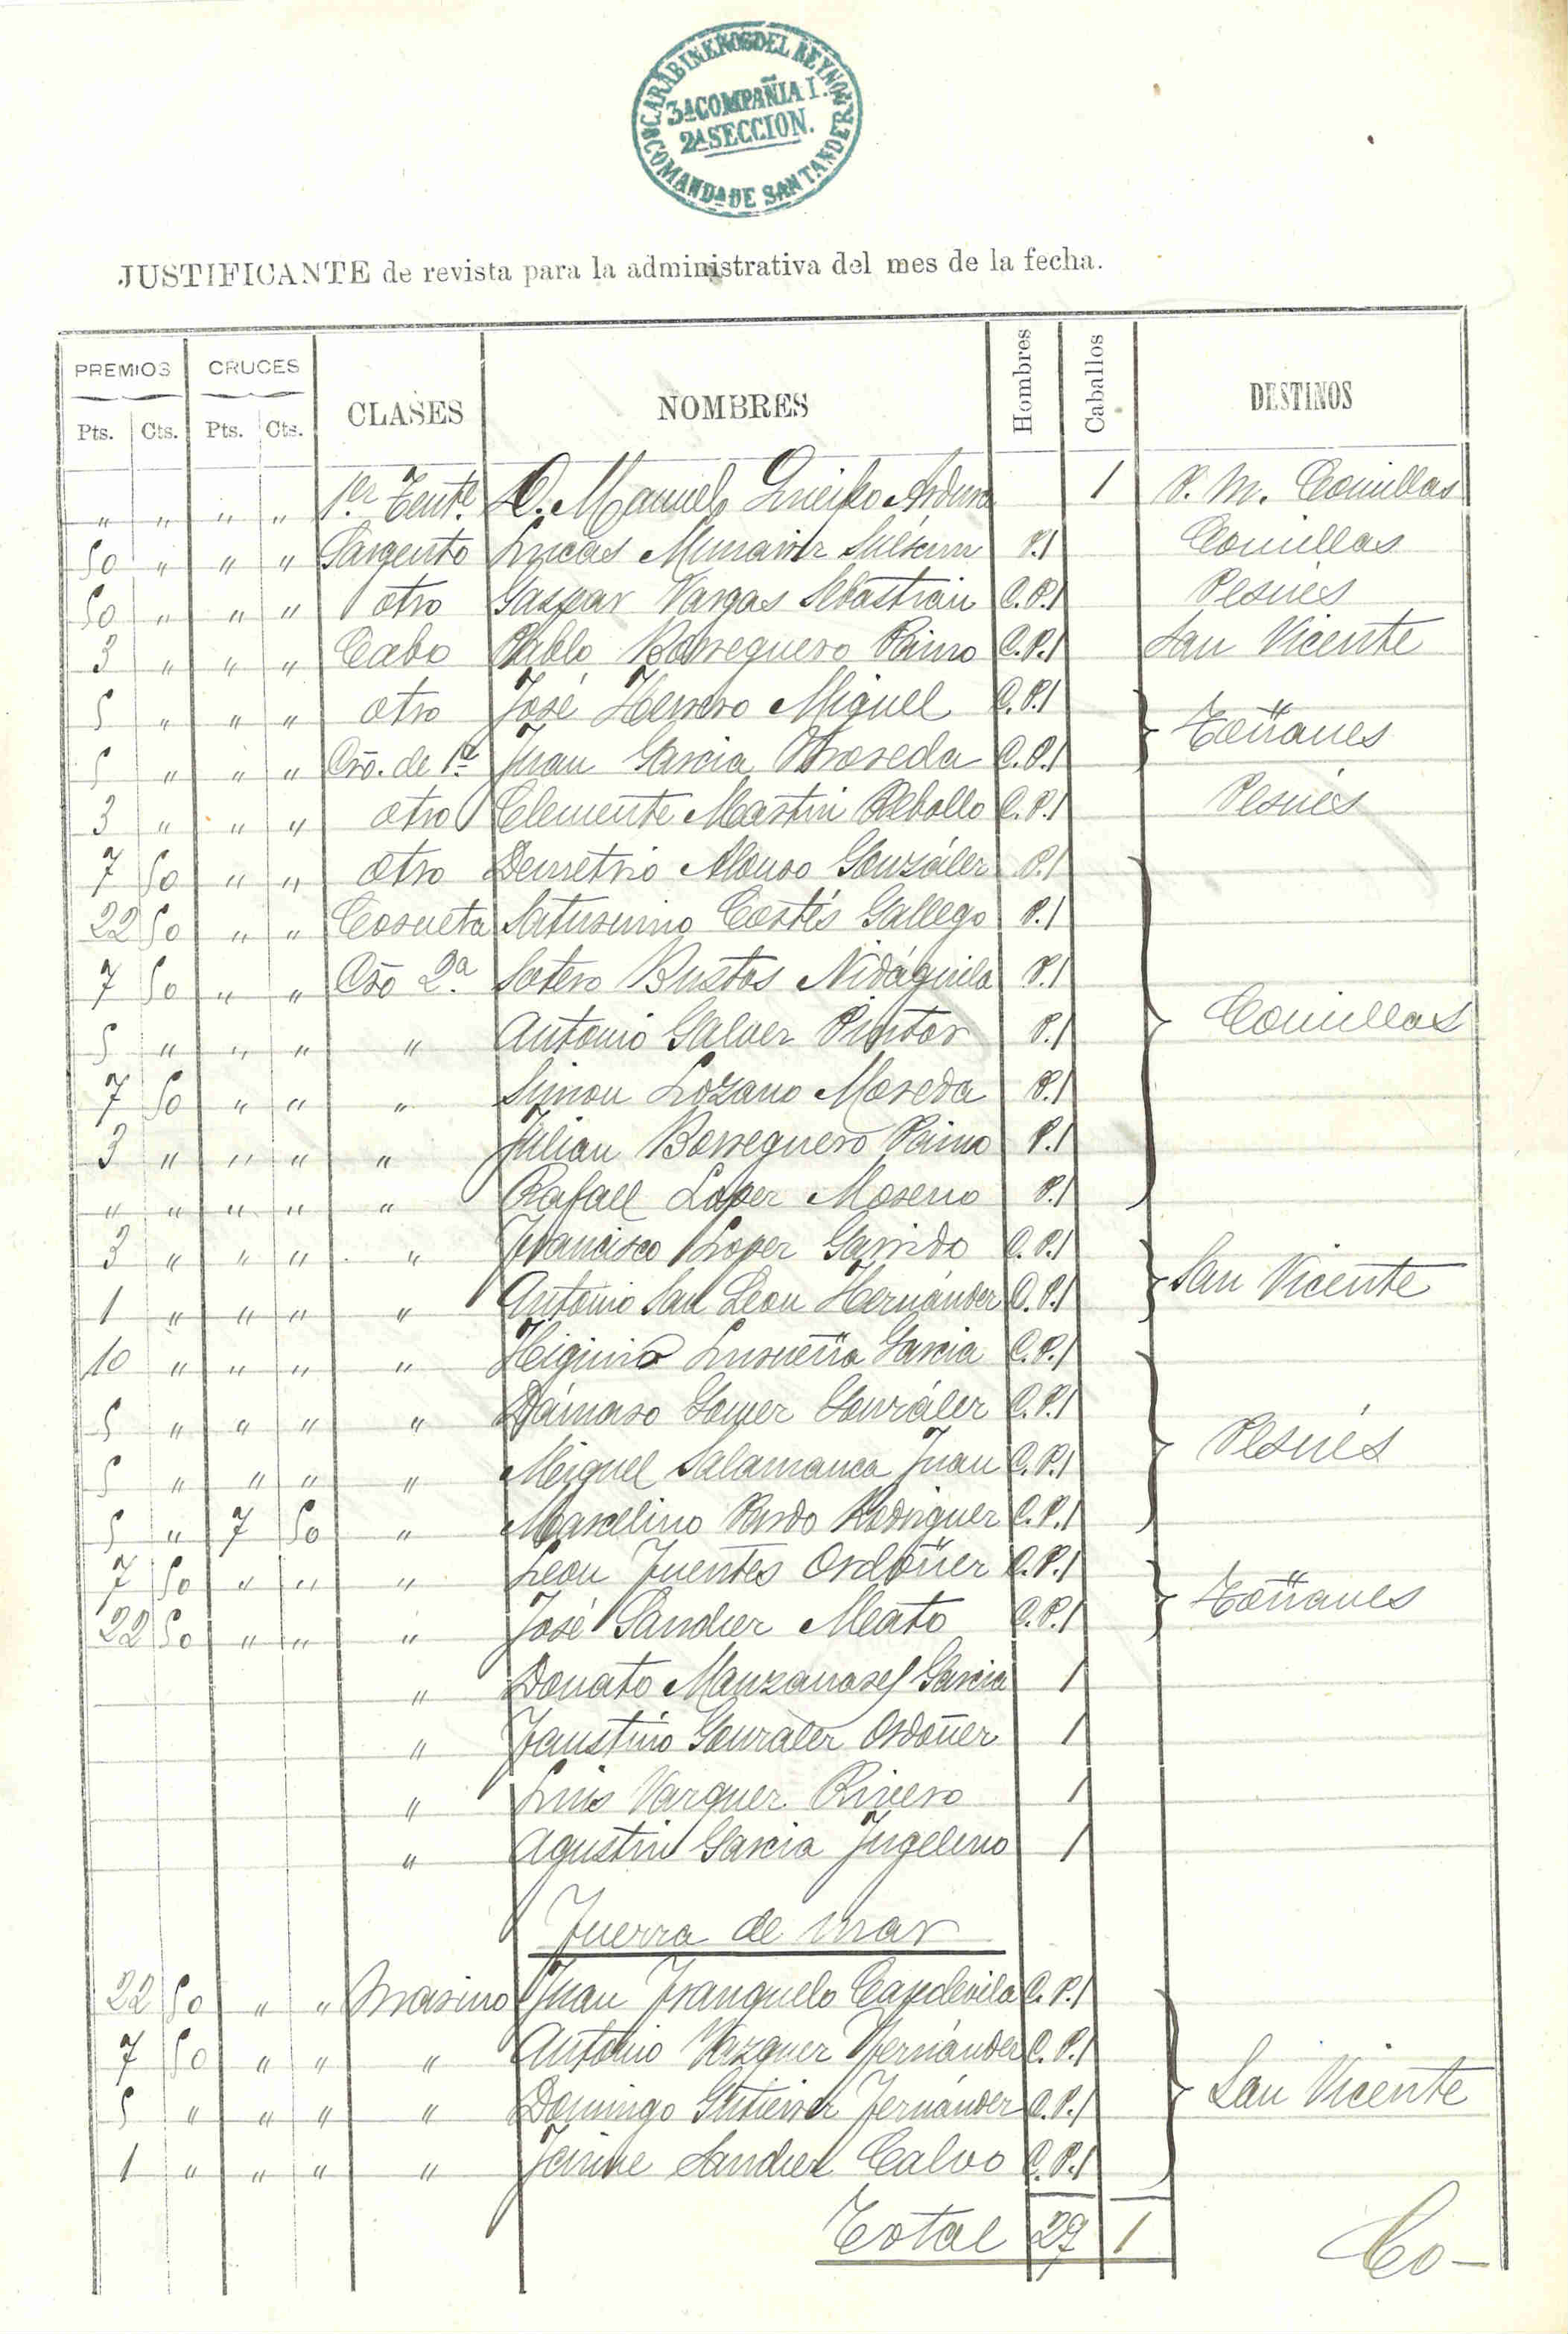 CARABINEROS DEL REYNO
3ª COMPAÑIA I.
2ª SECCION.
COMANDª DE SANTANDER
JUSTIFICANTE de revista para la administrativa del mes de la fecha.
PREMIOS CRUCES CLASES NOMBRES Hombres Caballos DESTINOS
Pts. Cts. Pts. Cts.
" " " " 1er Tente. D. Manuel 1 P. M. Comillas
50 " " " Sargento Lucas Munarriz P. 1 Comillas
50 " " " otro Gaspar Vargas Sebastian C. P. 1 Pesués
3 " " " Cabo Pablo Borreguero Paino C. P. 1 San Vicente
5 " " " otro José Herrero Miguel C. P. 1
5 " " " Cro. de 1ª Juan Garcia Moreda C. P. 1 Toñanes
3 " " " otro Clemente Martin Rebollo C. P. 1 Pesués
7 50 " " otro Demetrio Alonso González P. 1
22 50 " " Corneta Saturnino Cortés Gallego P. 1
7 50 " " Cro 2.ª Sotero Bustos Nidáguila P. 1
5 " " " " Antonio Galvez Pintor P. 1 Comillas
7 50 " " " Simon Lozano Moreda P. 1
3 " " " " Julian Borreguero Paino P. 1
" " " " " Rafael Lopez Moreno P. 1
3 " " " " Francisco Lopez Garrido C. P. 1
1 " " " " Antonio San Leon Hernández C. P. 1 San Vicente
10 " " " " Higinio Lurueña Garcia C. P. 1
5 " " " " Dámaso Gomez González C. P. 1
5 " " " " Miguel Salamanca Juan C. P. 1 Pesués
5 " 7 50 " Marcelino Pardo Rodriguez C. P. 1
7 50 " " " Leon Fuentes Ordoñez C. P. 1
22 50 " " " José Sanchez Meato C. P. 1 Toñanes
" Donato Manzanares Garcia 1
" Faustino Gonzalez Ordoñez 1
" Luis Vazquez Rivero 1
" Agustin Garcia Jugelmo 1
Fuerza de mar
22 50 " " Marino Juan Franquelo Capdevila C. P. 1
7 50 " " " Antonio Vazquez Fernández C. P. 1
5 " " " " Domingo Gutierrez Fernández C. P. 1 San Vicente
1 " " " " Jaime Sanchez Calvo C. P. 1
Total 29 1
Co-